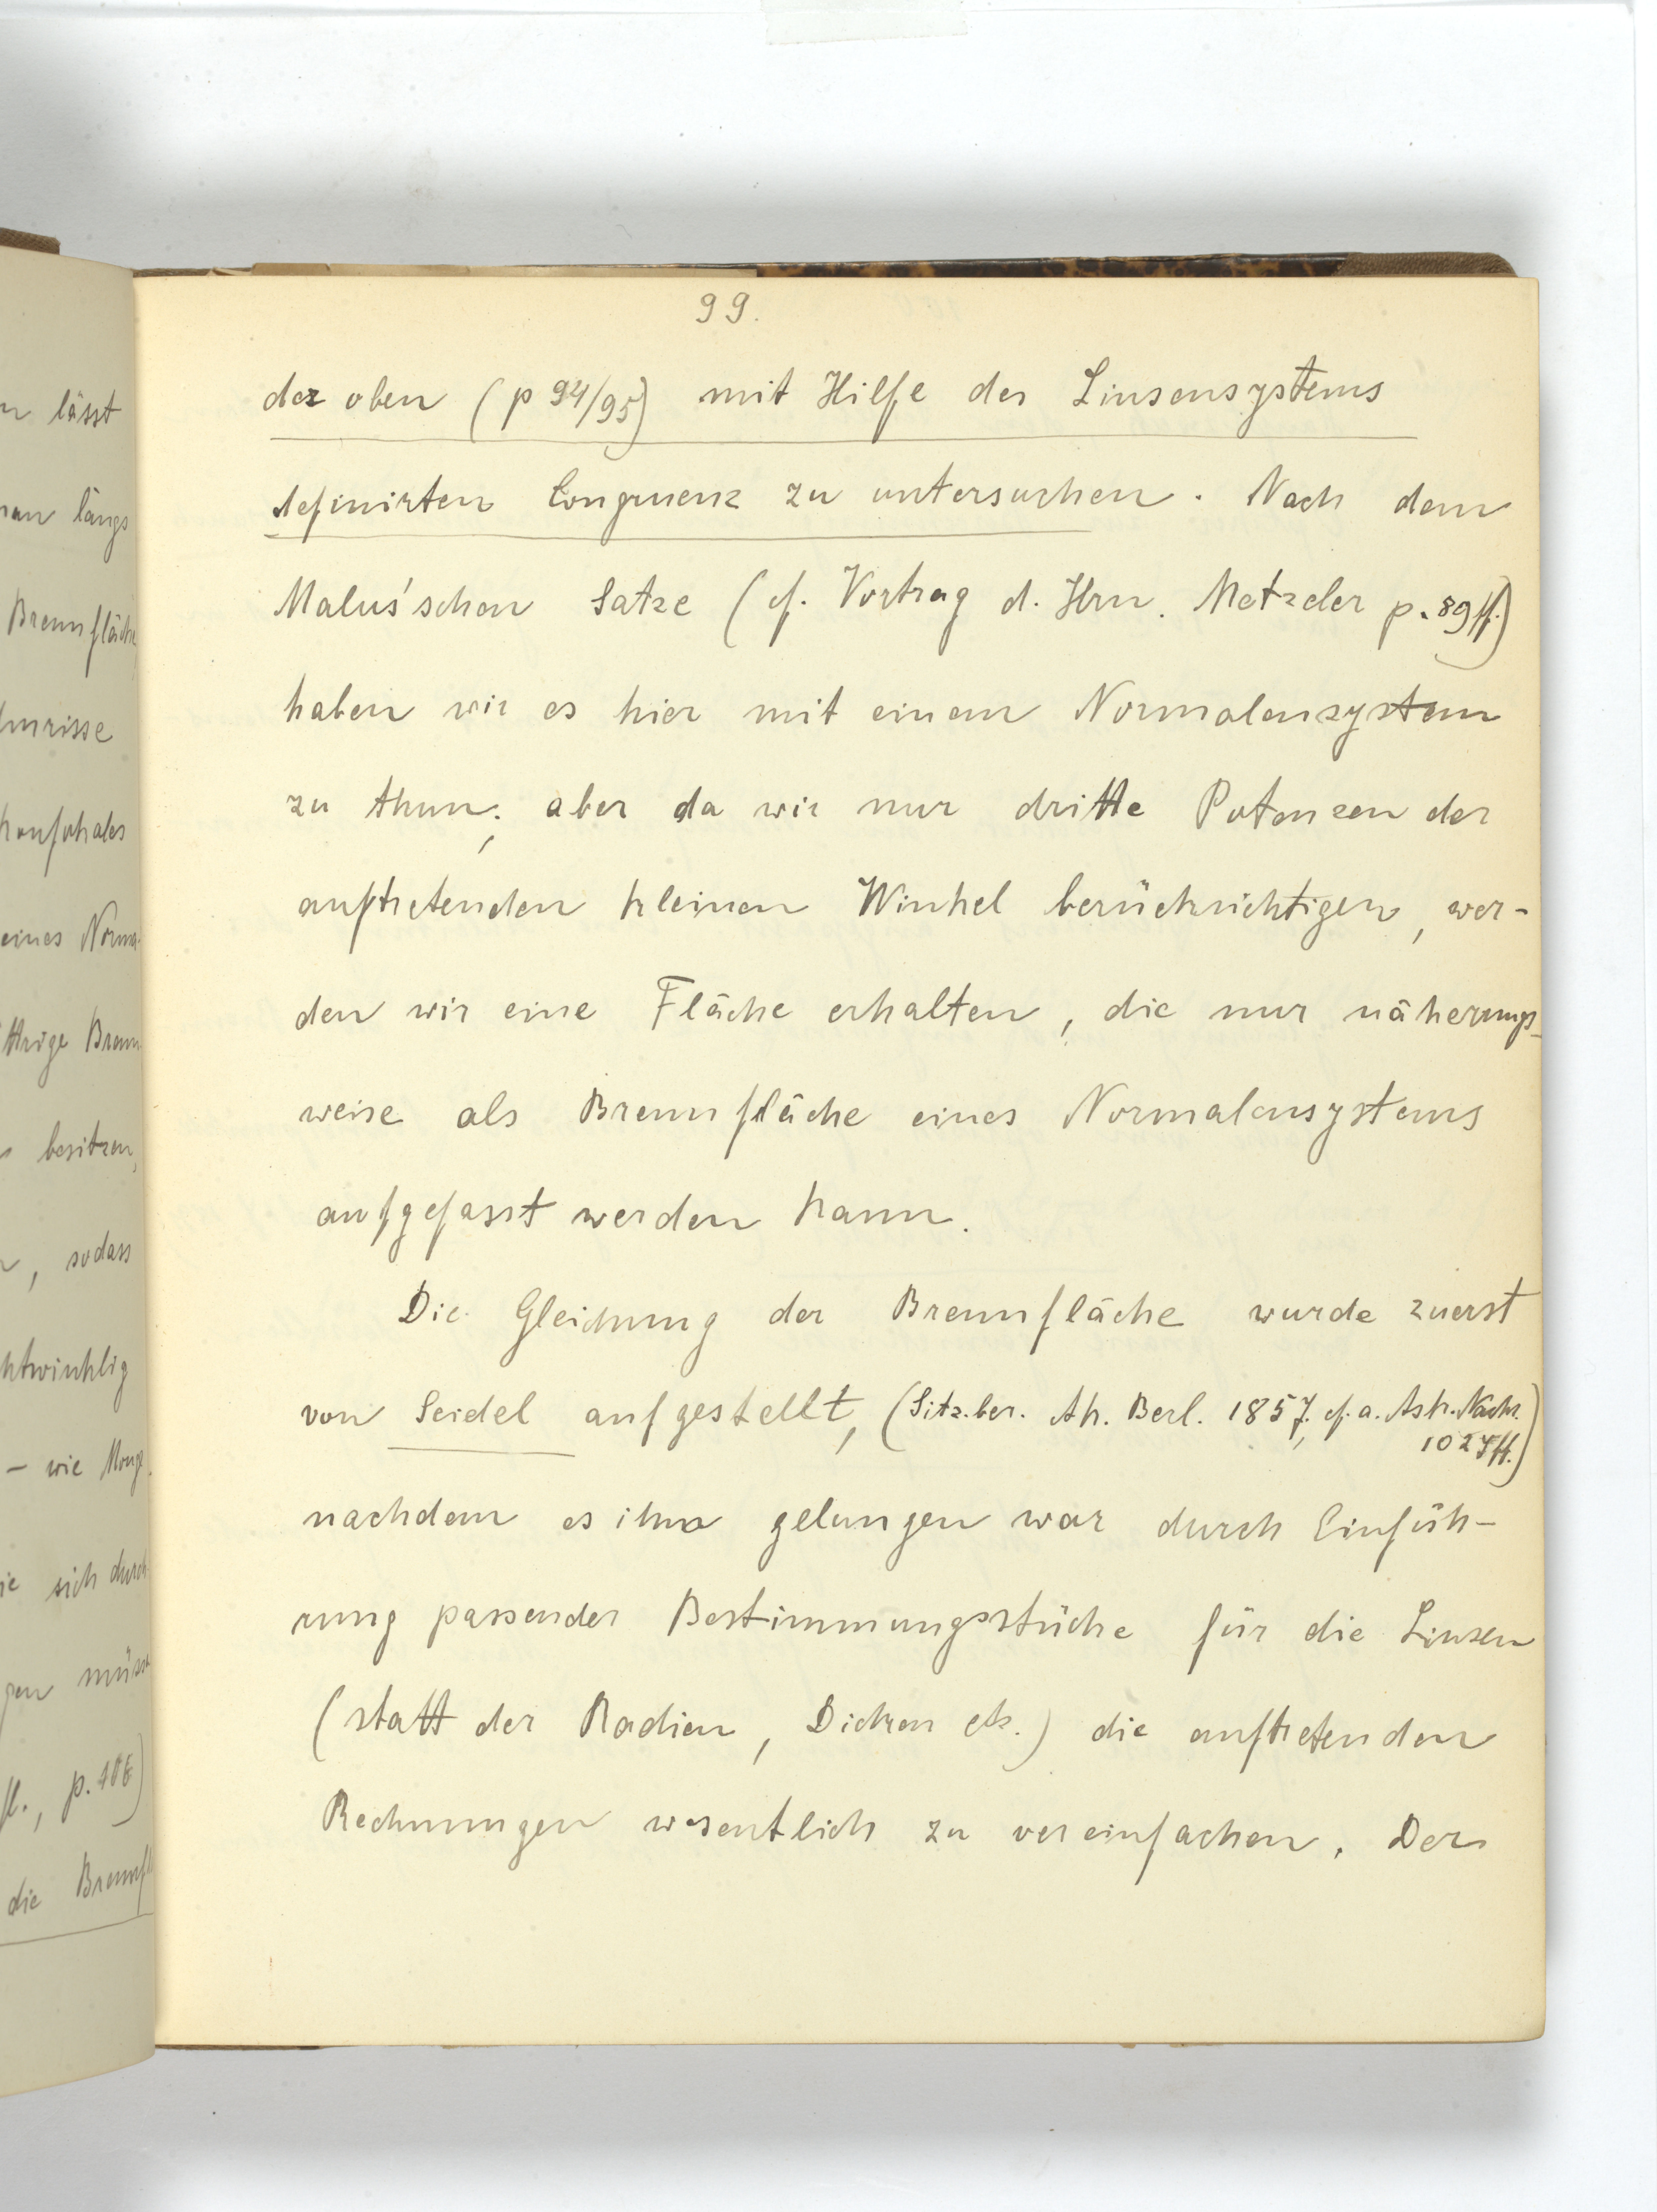 n lässt
nan längs
Brennfläche
mrisse
konfokales
eines Norma-
ttrige Brenn
besitzen,
, sodass
htwinklig
– wie Monge
ie sich durch
gen müsse
fl., p. 106)
die Brennfl
99.
der oben (p 94/95) mit Hilfe des Linsensystems
definirten Congruenz zu untersuchen. Nach dem
Malus'schen Satze (cf. Vortrag d. Hrn. Metzeler p. 89 ff.)
haben wir es hier mit einem Normalensystem
zu thun; aber da wir nur dritte Potenzen der
auftretenden kleinen Winkel berücksichtigen, wer-
den wir eine Fläche erhalten, die nur näherungs-
weise als Brennfläche eines Normalensystems
aufgefasst werden kann.
Die Gleichung der Brennfläche wurde zuerst
von Seidel aufgestellt, (Sitz.ber. Ak. Berl. 1857, cf. a. Astr. Nachr.
1027 ff.)
nachdem es ihm gelungen war durch Einfüh-
rung passender Bestimmungsstücke für die Linsen
(statt der Radien, Dicken etc.) die auftretenden
Rechnungen wesentlich zu vereinfachen. Der